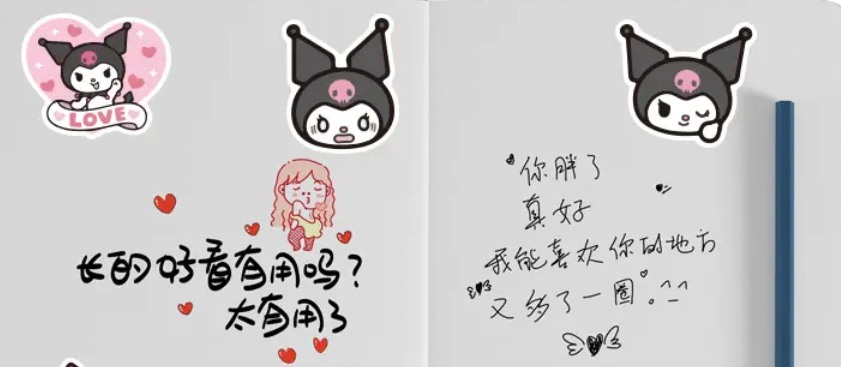 LOVE
长的好看有用吗？
太有用了
你胖了
真好
我能喜欢你的地方
又多了一圈。^_^